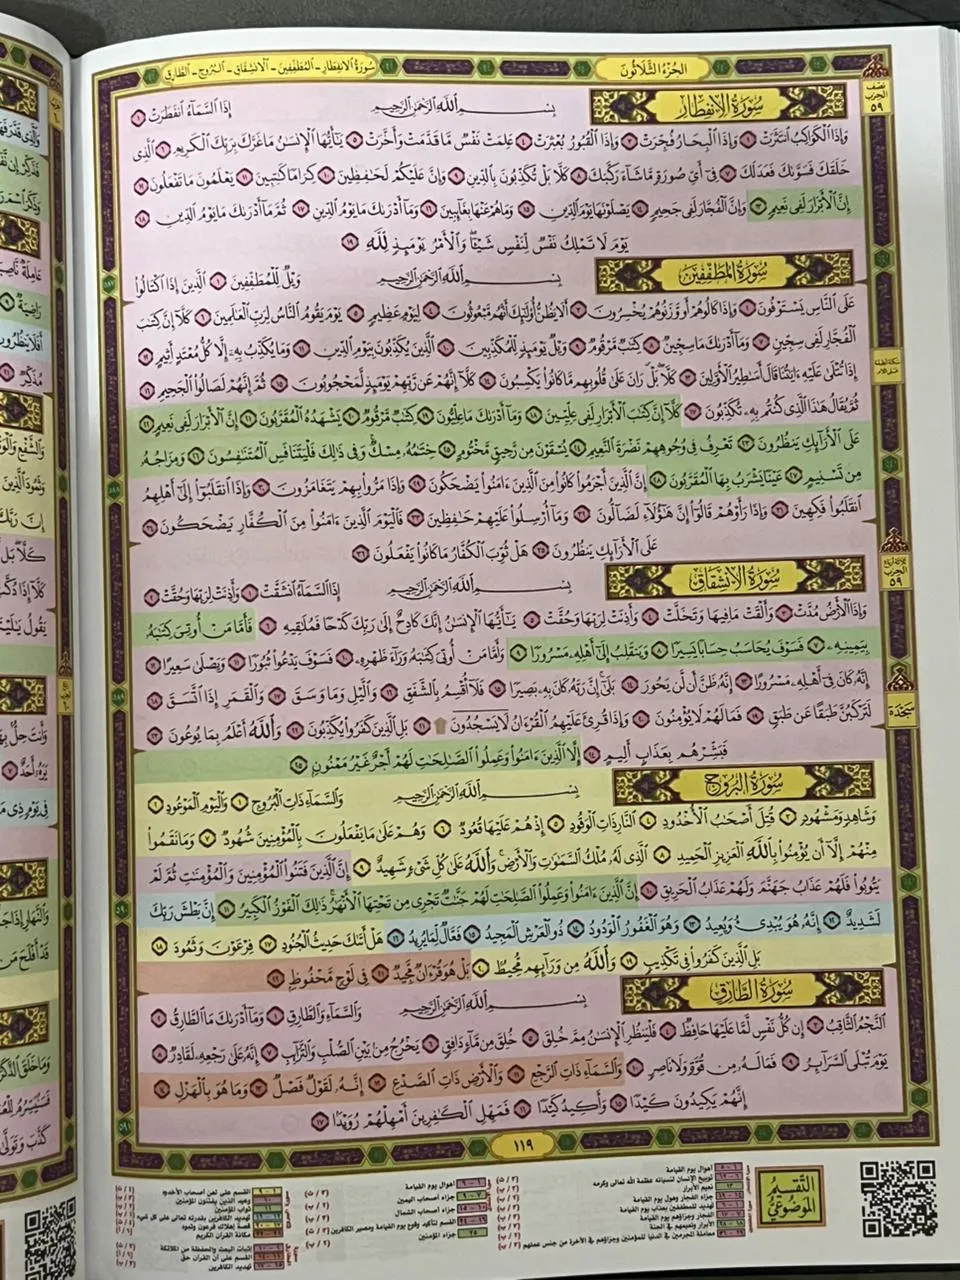 سُورَةُ الِانفِطَارِ - المُطَفِّفِين - الِانشِقَاق - البُرُوج - الطَّارِق
الجُزْءُ الثَّلَاثُونَ
نصف الحزب ٥٩
سُورَةُ الِانفِطَارِ
بِسْمِ اللَّهِ الرَّحْمَٰنِ الرَّحِيمِ
إِذَا السَّمَاءُ انفَطَرَتْ ١
وَإِذَا الْكَوَاكِبُ انتَثَرَتْ ٢ وَإِذَا الْبِحَارُ فُجِّرَتْ ٣ وَإِذَا الْقُبُورُ بُعْثِرَتْ ٤ عَلِمَتْ نَفْسٌ مَّا قَدَّمَتْ وَأَخَّرَتْ ٥ يَٰأَيُّهَا الْإِنسَٰنُ مَا غَرَّكَ بِرَبِّكَ الْكَرِيمِ ٦ الَّذِي
خَلَقَكَ فَسَوَّىٰكَ فَعَدَلَكَ ٧ فِي أَيِّ صُورَةٍ مَّا شَاءَ رَكَّبَكَ ٨ كَلَّا بَلْ تُكَذِّبُونَ بِالدِّينِ ٩ وَإِنَّ عَلَيْكُمْ لَحَٰفِظِينَ ١٠ كِرَامًا كَٰتِبِينَ ١١ يَعْلَمُونَ مَا تَفْعَلُونَ ١٢
إِنَّ الْأَبْرَارَ لَفِي نَعِيمٍ ١٣ وَإِنَّ الْفُجَّارَ لَفِي جَحِيمٍ ١٤ يَصْلَوْنَهَا يَوْمَ الدِّينِ ١٥ وَمَا هُمْ عَنْهَا بِغَائِبِينَ ١٦ وَمَا أَدْرَىٰكَ مَا يَوْمُ الدِّينِ ١٧ ثُمَّ مَا أَدْرَىٰكَ مَا يَوْمُ الدِّينِ ١٨
يَوْمَ لَا تَمْلِكُ نَفْسٌ لِّنَفْسٍ شَيْـًٔا وَالْأَمْرُ يَوْمَئِذٍ لِّلَّهِ ١٩
سُورَةُ المُطَفِّفِينَ
بِسْمِ اللَّهِ الرَّحْمَٰنِ الرَّحِيمِ
وَيْلٌ لِّلْمُطَفِّفِينَ ١ الَّذِينَ إِذَا اكْتَالُوا
عَلَى النَّاسِ يَسْتَوْفُونَ ٢ وَإِذَا كَالُوهُمْ أَو وَّزَنُوهُمْ يُخْسِرُونَ ٣ أَلَا يَظُنُّ أُولَٰئِكَ أَنَّهُم مَّبْعُوثُونَ ٤ لِيَوْمٍ عَظِيمٍ ٥ يَوْمَ يَقُومُ النَّاسُ لِرَبِّ الْعَالَمِينَ ٦ كَلَّا إِنَّ كِتَٰبَ
الْفُجَّارِ لَفِي سِجِّينٍ ٧ وَمَا أَدْرَىٰكَ مَا سِجِّينٌ ٨ كِتَٰبٌ مَّرْقُومٌ ٩ وَيْلٌ يَوْمَئِذٍ لِّلْمُكَذِّبِينَ ١٠ الَّذِينَ يُكَذِّبُونَ بِيَوْمِ الدِّينِ ١١ وَمَا يُكَذِّبُ بِهِ إِلَّا كُلُّ مُعْتَدٍ أَثِيمٍ ١٢
إِذَا تُتْلَىٰ عَلَيْهِ ءَايَٰتُنَا قَالَ أَسَٰطِيرُ الْأَوَّلِينَ ١٣ كَلَّا بَلْ رَانَ عَلَىٰ قُلُوبِهِم مَّا كَانُوا يَكْسِبُونَ ١٤ كَلَّا إِنَّهُمْ عَن رَّبِّهِمْ يَوْمَئِذٍ لَّمَحْجُوبُونَ ١٥ ثُمَّ إِنَّهُمْ لَصَالُوا الْجَحِيمِ ١٦
ثُمَّ يُقَالُ هَٰذَا الَّذِي كُنتُم بِهِ تُكَذِّبُونَ ١٧ كَلَّا إِنَّ كِتَٰبَ الْأَبْرَارِ لَفِي عِلِّيِّينَ ١٨ وَمَا أَدْرَىٰكَ مَا عِلِّيُّونَ ١٩ كِتَٰبٌ مَّرْقُومٌ ٢٠ يَشْهَدُهُ الْمُقَرَّبُونَ ٢١ إِنَّ الْأَبْرَارَ لَفِي نَعِيمٍ ٢٢
عَلَى الْأَرَائِكِ يَنظُرُونَ ٢٣ تَعْرِفُ فِي وُجُوهِهِمْ نَضْرَةَ النَّعِيمِ ٢٤ يُسْقَوْنَ مِن رَّحِيقٍ مَّخْتُومٍ ٢٥ خِتَٰمُهُ مِسْكٌ وَفِي ذَٰلِكَ فَلْيَتَنَافَسِ الْمُتَنَٰفِسُونَ ٢٦ وَمِزَاجُهُ
مِن تَسْنِيمٍ ٢٧ عَيْنًا يَشْرَبُ بِهَا الْمُقَرَّبُونَ ٢٨ إِنَّ الَّذِينَ أَجْرَمُوا كَانُوا مِنَ الَّذِينَ ءَامَنُوا يَضْحَكُونَ ٢٩ وَإِذَا مَرُّوا بِهِمْ يَتَغَامَزُونَ ٣٠ وَإِذَا انقَلَبُوا إِلَىٰ أَهْلِهِمُ
انقَلَبُوا فَكِهِينَ ٣١ وَإِذَا رَأَوْهُمْ قَالُوا إِنَّ هَٰؤُلَاءِ لَضَالُّونَ ٣٢ وَمَا أُرْسِلُوا عَلَيْهِمْ حَٰفِظِينَ ٣٣ فَالْيَوْمَ الَّذِينَ ءَامَنُوا مِنَ الْكُفَّارِ يَضْحَكُونَ ٣٤
عَلَى الْأَرَائِكِ يَنظُرُونَ ٣٥ هَلْ ثُوِّبَ الْكُفَّارُ مَا كَانُوا يَفْعَلُونَ ٣٦
ثلاثة أرباع الحزب ٥٩
سُورَةُ الِانشِقَاقِ
بِسْمِ اللَّهِ الرَّحْمَٰنِ الرَّحِيمِ
إِذَا السَّمَاءُ انشَقَّتْ ١ وَأَذِنَتْ لِرَبِّهَا وَحُقَّتْ ٢
وَإِذَا الْأَرْضُ مُدَّتْ ٣ وَأَلْقَتْ مَا فِيهَا وَتَخَلَّتْ ٤ وَأَذِنَتْ لِرَبِّهَا وَحُقَّتْ ٥ يَٰأَيُّهَا الْإِنسَٰنُ إِنَّكَ كَادِحٌ إِلَىٰ رَبِّكَ كَدْحًا فَمُلَٰقِيهِ ٦ فَأَمَّا مَنْ أُوتِيَ كِتَٰبَهُ
بِيَمِينِهِ ٧ فَسَوْفَ يُحَاسَبُ حِسَابًا يَسِيرًا ٨ وَيَنقَلِبُ إِلَىٰ أَهْلِهِ مَسْرُورًا ٩ وَأَمَّا مَنْ أُوتِيَ كِتَٰبَهُ وَرَاءَ ظَهْرِهِ ١٠ فَسَوْفَ يَدْعُوا ثُبُورًا ١١ وَيَصْلَىٰ سَعِيرًا ١٢
إِنَّهُ كَانَ فِي أَهْلِهِ مَسْرُورًا ١٣ إِنَّهُ ظَنَّ أَن لَّن يَحُورَ ١٤ بَلَىٰ إِنَّ رَبَّهُ كَانَ بِهِ بَصِيرًا ١٥ فَلَا أُقْسِمُ بِالشَّفَقِ ١٦ وَاللَّيْلِ وَمَا وَسَقَ ١٧ وَالْقَمَرِ إِذَا اتَّسَقَ ١٨
سَجْدَة
لَتَرْكَبُنَّ طَبَقًا عَن طَبَقٍ ١٩ فَمَا لَهُمْ لَا يُؤْمِنُونَ ٢٠ وَإِذَا قُرِئَ عَلَيْهِمُ الْقُرْءَانُ لَا يَسْجُدُونَ ۩ ٢١ بَلِ الَّذِينَ كَفَرُوا يُكَذِّبُونَ ٢٢ وَاللَّهُ أَعْلَمُ بِمَا يُوعُونَ ٢٣
فَبَشِّرْهُم بِعَذَابٍ أَلِيمٍ ٢٤ إِلَّا الَّذِينَ ءَامَنُوا وَعَمِلُوا الصَّٰلِحَٰتِ لَهُمْ أَجْرٌ غَيْرُ مَمْنُونٍ ٢٥
سُورَةُ البُرُوجِ
بِسْمِ اللَّهِ الرَّحْمَٰنِ الرَّحِيمِ
وَالسَّمَاءِ ذَاتِ الْبُرُوجِ ١ وَالْيَوْمِ الْمَوْعُودِ ٢
وَشَاهِدٍ وَمَشْهُودٍ ٣ قُتِلَ أَصْحَٰبُ الْأُخْدُودِ ٤ النَّارِ ذَاتِ الْوَقُودِ ٥ إِذْ هُمْ عَلَيْهَا قُعُودٌ ٦ وَهُمْ عَلَىٰ مَا يَفْعَلُونَ بِالْمُؤْمِنِينَ شُهُودٌ ٧ وَمَا نَقَمُوا
مِنْهُمْ إِلَّا أَن يُؤْمِنُوا بِاللَّهِ الْعَزِيزِ الْحَمِيدِ ٨ الَّذِي لَهُ مُلْكُ السَّمَٰوَٰتِ وَالْأَرْضِ وَاللَّهُ عَلَىٰ كُلِّ شَيْءٍ شَهِيدٌ ٩ إِنَّ الَّذِينَ فَتَنُوا الْمُؤْمِنِينَ وَالْمُؤْمِنَٰتِ ثُمَّ لَمْ
يَتُوبُوا فَلَهُمْ عَذَابُ جَهَنَّمَ وَلَهُمْ عَذَابُ الْحَرِيقِ ١٠ إِنَّ الَّذِينَ ءَامَنُوا وَعَمِلُوا الصَّٰلِحَٰتِ لَهُمْ جَنَّٰتٌ تَجْرِي مِن تَحْتِهَا الْأَنْهَٰرُ ذَٰلِكَ الْفَوْزُ الْكَبِيرُ ١١ إِنَّ بَطْشَ رَبِّكَ
لَشَدِيدٌ ١٢ إِنَّهُ هُوَ يُبْدِئُ وَيُعِيدُ ١٣ وَهُوَ الْغَفُورُ الْوَدُودُ ١٤ ذُو الْعَرْشِ الْمَجِيدُ ١٥ فَعَّالٌ لِّمَا يُرِيدُ ١٦ هَلْ أَتَىٰكَ حَدِيثُ الْجُنُودِ ١٧ فِرْعَوْنَ وَثَمُودَ ١٨
بَلِ الَّذِينَ كَفَرُوا فِي تَكْذِيبٍ ١٩ وَاللَّهُ مِن وَرَائِهِم مُّحِيطٌ ٢٠ بَلْ هُوَ قُرْءَانٌ مَّجِيدٌ ٢١ فِي لَوْحٍ مَّحْفُوظٍ ٢٢
سُورَةُ الطَّارِقِ
بِسْمِ اللَّهِ الرَّحْمَٰنِ الرَّحِيمِ
وَالسَّمَاءِ وَالطَّارِقِ ١ وَمَا أَدْرَىٰكَ مَا الطَّارِقُ ٢
النَّجْمُ الثَّاقِبُ ٣ إِن كُلُّ نَفْسٍ لَّمَّا عَلَيْهَا حَافِظٌ ٤ فَلْيَنظُرِ الْإِنسَٰنُ مِمَّ خُلِقَ ٥ خُلِقَ مِن مَّاءٍ دَافِقٍ ٦ يَخْرُجُ مِن بَيْنِ الصُّلْبِ وَالتَّرَائِبِ ٧ إِنَّهُ عَلَىٰ رَجْعِهِ لَقَادِرٌ ٨
يَوْمَ تُبْلَى السَّرَائِرُ ٩ فَمَا لَهُ مِن قُوَّةٍ وَلَا نَاصِرٍ ١٠ وَالسَّمَاءِ ذَاتِ الرَّجْعِ ١١ وَالْأَرْضِ ذَاتِ الصَّدْعِ ١٢ إِنَّهُ لَقَوْلٌ فَصْلٌ ١٣ وَمَا هُوَ بِالْهَزْلِ ١٤
إِنَّهُمْ يَكِيدُونَ كَيْدًا ١٥ وَأَكِيدُ كَيْدًا ١٦ فَمَهِّلِ الْكَٰفِرِينَ أَمْهِلْهُمْ رُوَيْدًا ١٧
١١٩
التَّقْسِيمُ المَوْضُوعِيُّ
أهوال يوم القيامة
توبيخ الإنسان لنسيانه عظمة الله تعالى وكرمه
نعيم الأبرار
جزاء الفجار وهول يوم القيامة
تهديد للمطففين بعذاب يوم القيامة
الفجار وجزاؤهم يوم القيامة
الأبرار ونعيمهم في الجنة
معاملة المجرمين في الدنيا للمؤمنين وجزاؤهم في الآخرة من جنس عملهم
أهوال يوم القيامة
جزاء أصحاب اليمين
جزاء أصحاب الشمال
القسم لتأكيد وقوع يوم القيامة ومصير الكافرين
جزاء المؤمنين
القسم على لعن أصحاب الأخدود
وعيد الذين يفتنون المؤمنين
ثواب المؤمنين
تهديد الكافرين بقدرته تعالى على كل شيء
قصة إهلاك فرعون وثمود
مكانة القرآن الكريم
إثبات البعث والحفظة من الملائكة
القسم على أن القرآن حق
تهديد الكافرين